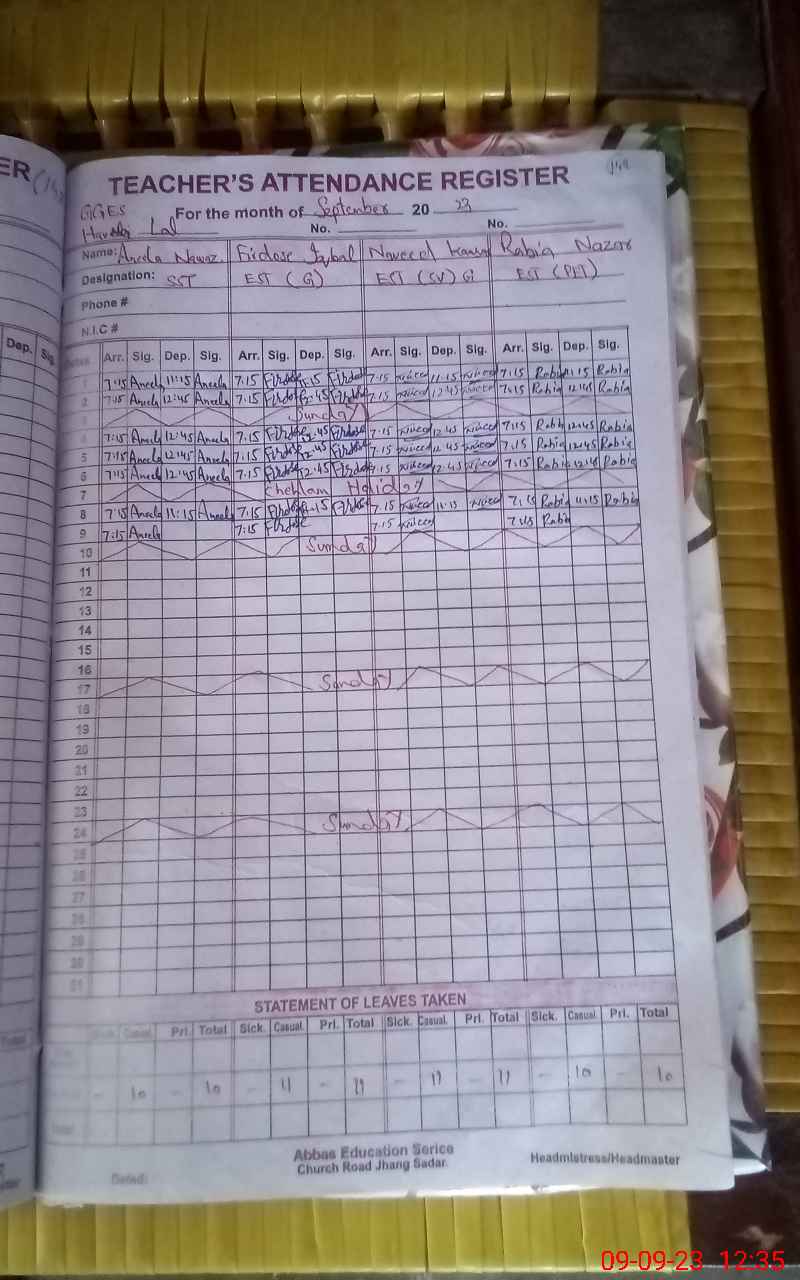 ER
TEACHER'S ATTENDANCE REGISTER
149
GGES
For the month of September 20 23
Lal
No.
No.
Name: Aneela Nawaz Firdose Iqbal Naveed Rabia Nazar
Designation: SST EST (G) EST (SV) G EST (PET)
Phone #
N.I.C #
Dep. Sig.
Arr. Sig. Dep. Sig. Arr. Sig. Dep. Sig. Arr. Sig. Dep. Sig. Arr. Sig. Dep. Sig.
1 7:15 Aneela 11:15 Aneela 7.15 Firdose Firdose 7.15 Naveed 11.15 Naveed 7:15 Rabia 11:15 Rabia
2 7:15 Aneela 12:45 Aneela 7.15 Firdose 12.45 Firdose 7.15 Naveed 12.45 Naveed 7:15 Rabia 12:45 Rabia
Sunday
4 7:15 Aneela 12:45 Aneela 7.15 Firdose 12.45 Firdose 7.15 Naveed 12.45 Naveed 7:15 Rabia 12:45 Rabia
5 7:15 Aneela 12:45 Aneela 7.15 Firdose 12.45 Firdose 7.15 Naveed 12.45 Naveed 7:15 Rabia 12:45 Rabia
6 7:15 Aneela 12:45 Aneela 7.15 Firdose 12.45 Firdose 7.15 Naveed 12.45 Naveed 7:15 Rabia 12:45 Rabia
7 Chehlam Holiday
8 7:15 Aneela 11:15 Aneela 7.15 Firdose 11.15 Firdose 7.15 Naveed 11.15 Naveed 7:15 Rabia 11:15 Rabia
9 7:15 Aneela 7:15 Firdose 7.15 Naveed 7:15 Rabia
10 Sunday
11
12
13
14
15
16
17 Sunday
18
19
20
21
22
23
24 Sunday
25
26
27
28
29
30
31
STATEMENT OF LEAVES TAKEN
Sick. Casual. Pri. Total Sick. Casual. Pri. Total Sick. Casual. Pri. Total Sick. Casual. Pri. Total
- 10 - 10 - 11 - 11 - 11 - 11 - 10 - 10
Total
Abbas Education Serice
Church Road Jhang Sadar.
Headmistress/Headmaster
Dated:
09-09-23 12:35